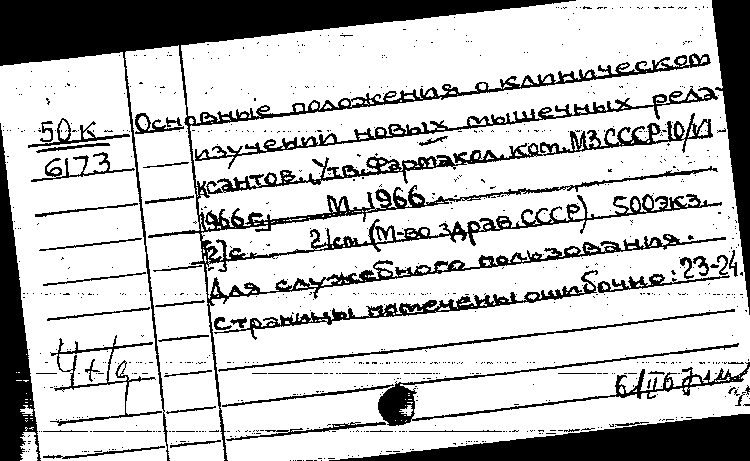 50к
6173
Основные положения о клиническом
изучении новых мышечных рела-
ксантов. Утв. Фармакол. ком. МЗ СССР 10/VI
1966 г. М., 1966.
[2] с. 21 см. (М-во здрав. СССР). 500 экз.
Для служебного пользования.
Страницы помечены ошибочно: 23-24.